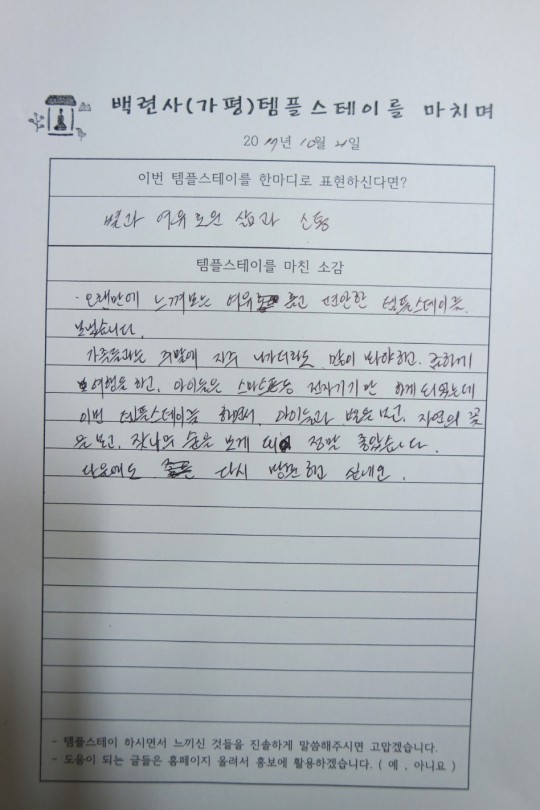 백련사(가평)템플스테이를 마치며
2017년 10월 21일
이번 템플스테이를 한마디로 표현하신다면?
별과 여유로운 삶과 소통
템플스테이를 마친 소감
오랜만에 느껴보는 여유롭고 편안한 템플스테이를
보냈습니다.
가족들과는 주말에 자주 나가더라도 많이 봐야하고, 급하게
여행을 하고, 아이들은 스마트폰등 전자기기만 하게 되었는데
이번 템플스테이를 하면서, 아이들과 별을 보고, 자연의 꽃
을 보고, 잣나무 숲을 보게 되어 정말 좋았습니다.
다음에도 다시 방문하고 싶네요.
- 템플스테이 하시면서 느끼신 것들을 진솔하게 말씀해주시면 고맙겠습니다.
- 도움이 되는 글들은 홈페이지 올려서 홍보에 활용하겠습니다. ( 예 , 아니요 )